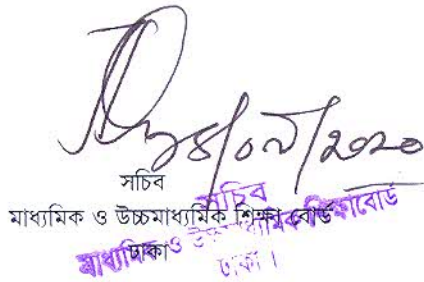 ১৪/০৭/২০২০
সচিব
মাধ্যমিক ও উচ্চমাধ্যমিক শিক্ষা বোর্ড
ঢাকা
সচিব
মাধ্যমিক ও উচ্চমাধ্যমিক শিক্ষাবোর্ড
ঢাকা।